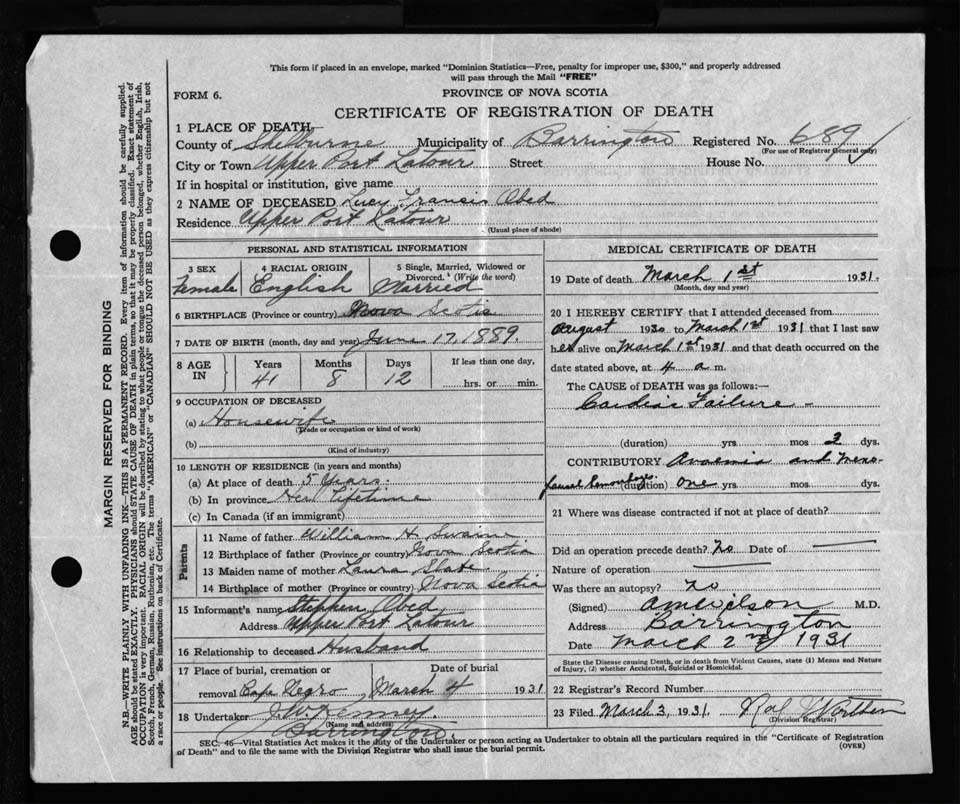 This form if placed in an envelope, marked "Dominion Statistics—Free, penalty for improper use, $300," and properly addressed
will pass through the Mail "FREE"
FORM 6.
PROVINCE OF NOVA SCOTIA
CERTIFICATE OF REGISTRATION OF DEATH
1 PLACE OF DEATH,
County of Shelburne Municipality of Barrington Registered No. 689
(For use of Registrar General only)
City or Town Upper Port Latour Street House No.
If in hospital or institution, give name
2 NAME OF DECEASED Lucy Francis Obed
Residence Upper Port Latour
(Usual place of abode)
PERSONAL AND STATISTICAL INFORMATION
3 SEX 4 RACIAL ORIGIN 5 Single, Married, Widowed or
Divorced. (Write the word)
Female English Married
6 BIRTHPLACE (Province or country) Nova Scotia
7 DATE OF BIRTH (month, day and year) June 17, 1889.
8 AGE IN Years Months Days If less than one day,
41 8 12 hrs. or min.
9 OCCUPATION OF DECEASED
(a) Housewife
(Trade or occupation or kind of work)
(b)
(Kind of industry)
10 LENGTH OF RESIDENCE (in years and months)
(a) At place of death 5 Years.
(b) In province Her Lifetime
(c) In Canada (if an immigrant)
Parents
11 Name of father William H. Swaine
12 Birthplace of father (Province or country) Nova Scotia
13 Maiden name of mother Laura Slate
14 Birthplace of mother (Province or country) Nova Scotia
15 Informant's name Stephen Obed
Address Upper Port Latour
16 Relationship to deceased Husband
17 Place of burial, cremation or Date of burial
removal Cape Negro March 4 1931
18 Undertaker J. W. Kenney
(Name and address)
Barrington
MEDICAL CERTIFICATE OF DEATH
19 Date of death March 1st 1931.
(Month, day and year)
20 I HEREBY CERTIFY that I attended deceased from
August 1930 to March 1st 1931 that I last saw
her alive on March 1st 1931 and that death occurred on the
date stated above, at 4 a m.
The CAUSE of DEATH was as follows:—
Cardiac Failure —
(duration) yrs. mos 2 dys.
CONTRIBUTORY Anaemia and Meno-
pausal (duration) one yrs. mos. dys.
21 Where was disease contracted if not at place of death?
Did an operation precede death? No Date of
Nature of operation
Was there an autopsy? No
(Signed) A M Wilson M.D.
Address Barrington
Date March 2nd 1931
State the Disease causing Death, or in death from Violent Causes, state (1) Means and Nature
of Injury, (2) whether Accidental, Suicidal or Homicidal.
22 Registrar's Record Number
23 Filed March 3, 1931.
(Division Registrar)
SEC. 46—Vital Statistics Act makes it the duty of the Undertaker or person acting as Undertaker to obtain all the particulars required in the "Certificate of Registration
of Death" and to file the same with the Division Registrar who shall issue the burial permit.
(OVER)
MARGIN RESERVED FOR BINDING
N.B.—WRITE PLAINLY WITH UNFADING INK—THIS IS A PERMANENT RECORD. Every item of information should be carefully supplied.
AGE should be stated EXACTLY. PHYSICIANS should STATE CAUSE OF DEATH in plain terms, so that it may be properly classified. Exact statement of
OCCUPATION is very important. RACIAL ORIGIN will be described by stating to what people or tongue the deceased person belonged, whether English, Irish,
Scotch, French, German, Russian, Ruthenian, etc. The terms "AMERICAN" or "CANADIAN" SHOULD NOT BE USED as they express citizenship but not
a race or people. See instructions on back of Certificate.